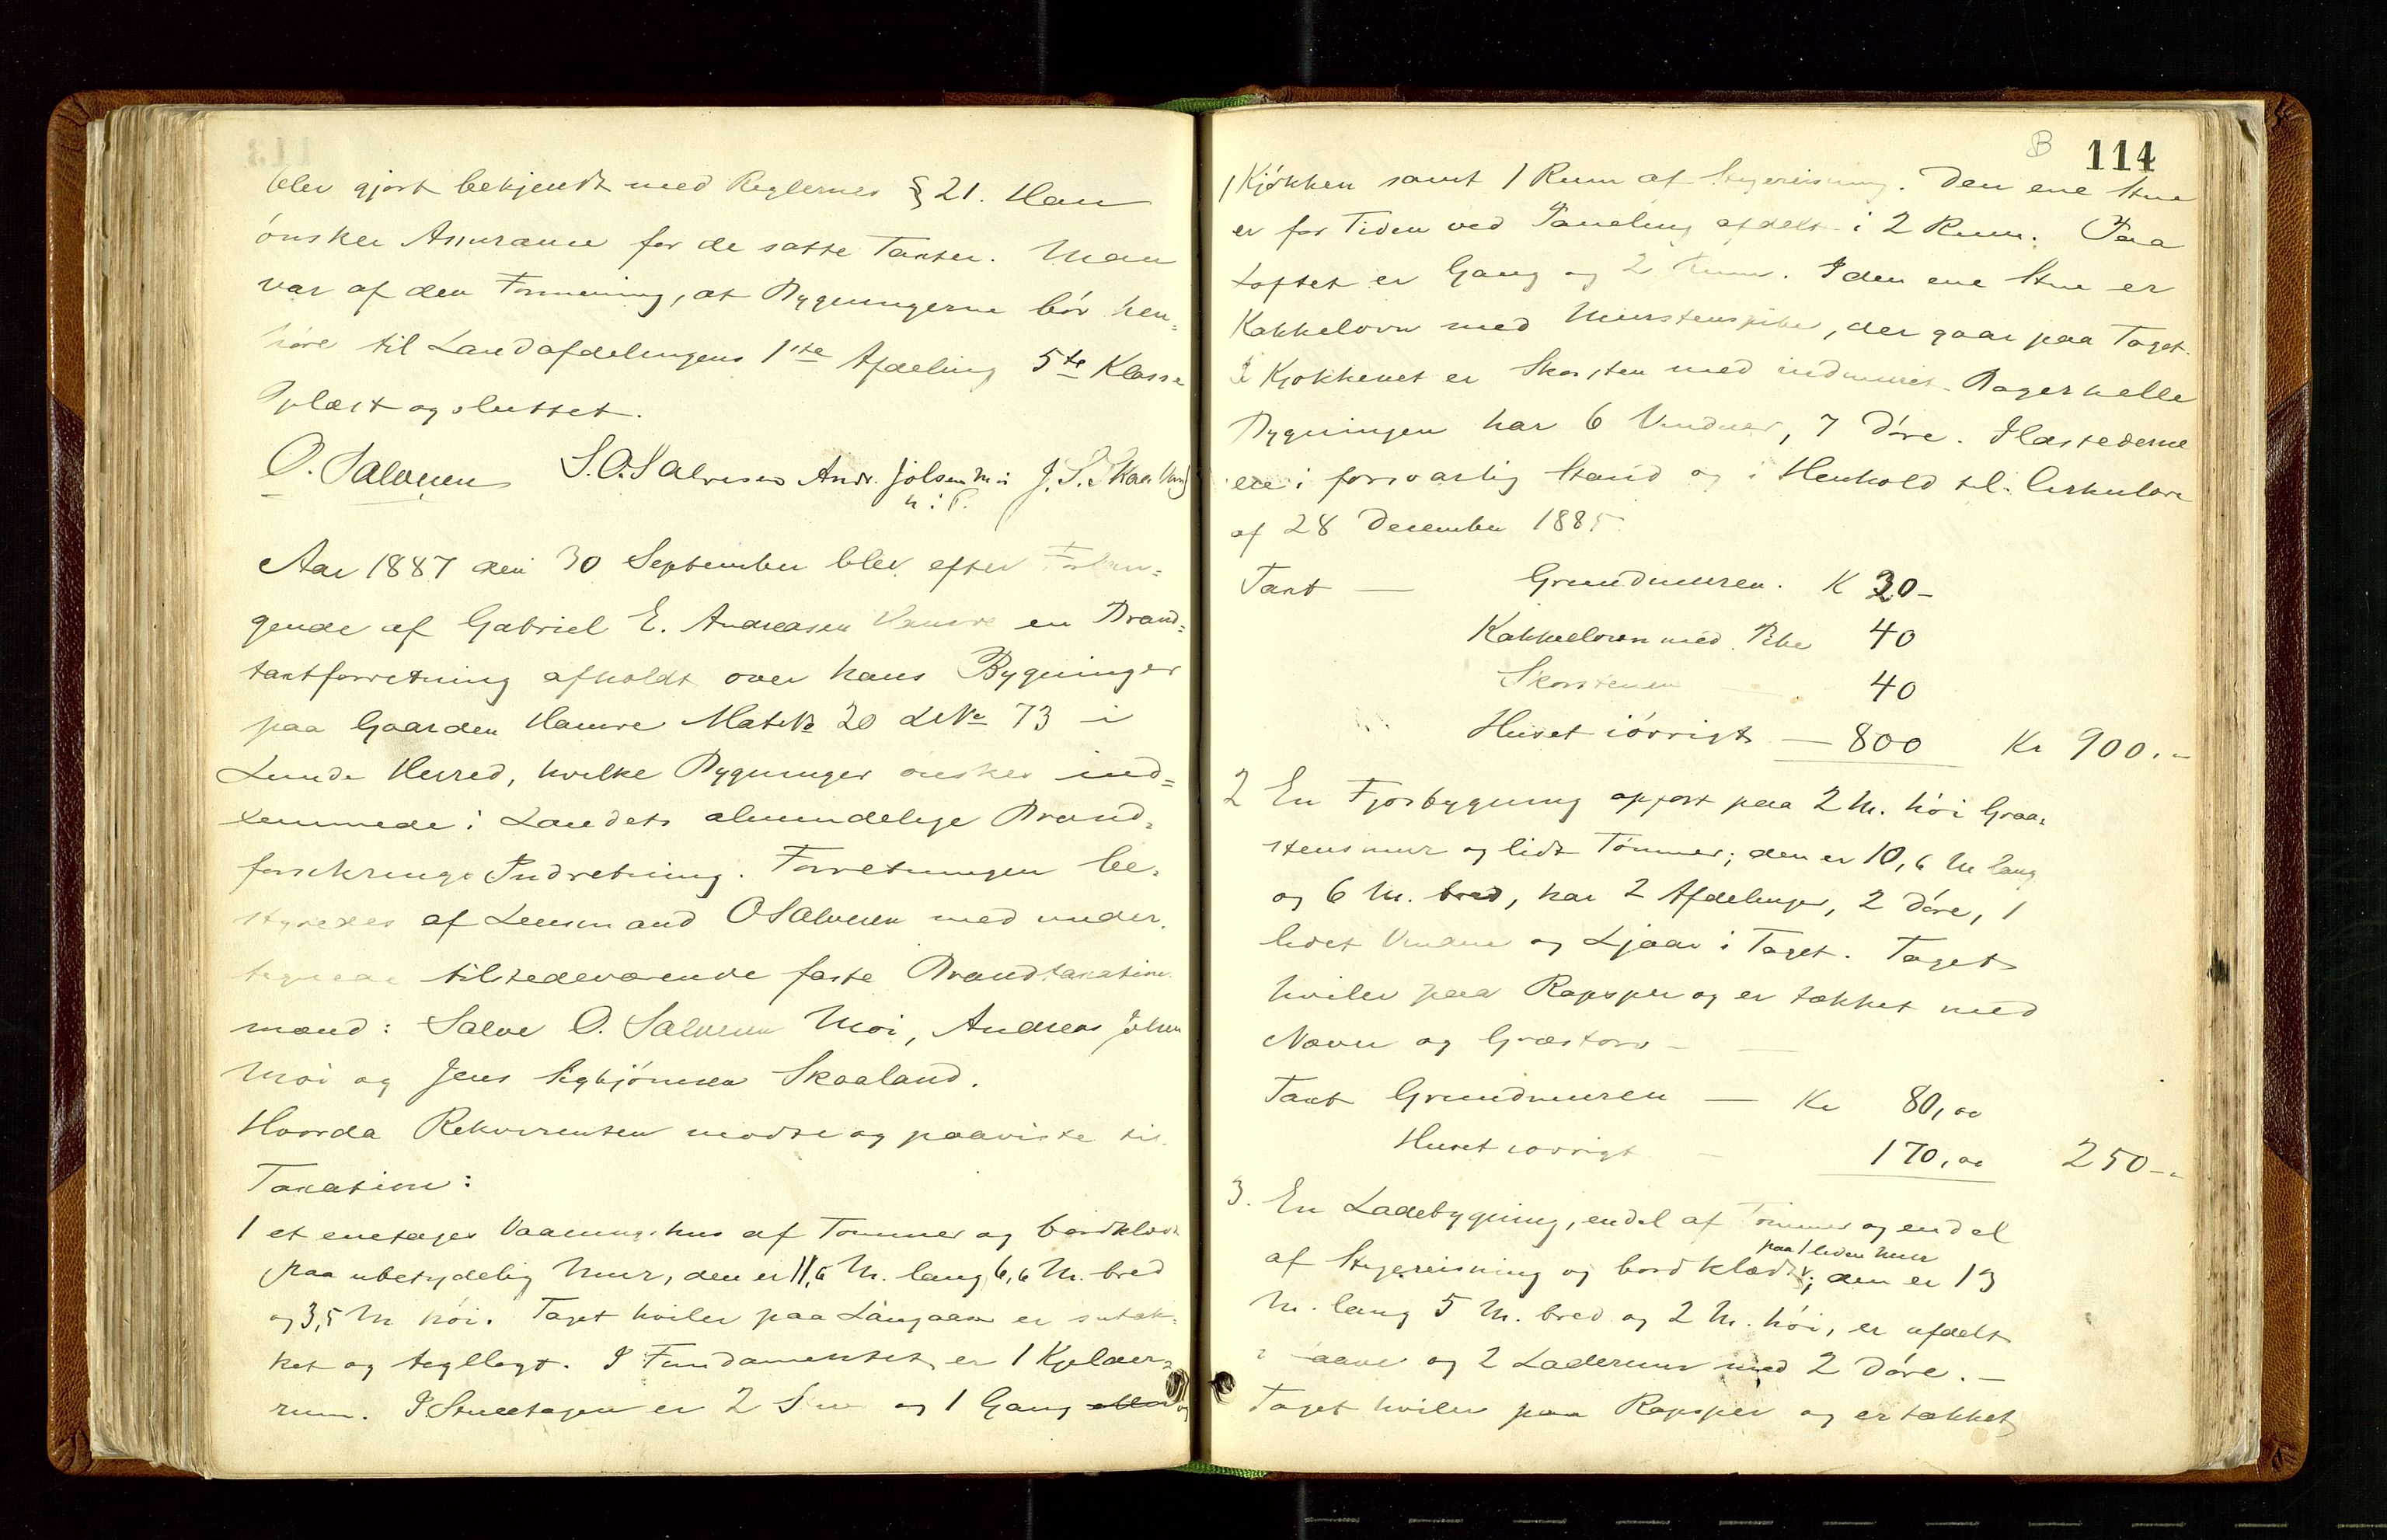 blev gjort bekjendt med Reglernes § 21. Han
ønsker Assurance for de satte Taxter. Man
var af den Formening, at Bygningerne bør hen-
høre til Landafdelingens 1ste Afdeling 5te Klasse
Oplæst og sluttet.
O. Salvesen S. O. Salvesen Andr. Jølsen Moi J. S. Skaaland
m: P.
Aar 1887 den 30 September blev efter Forlan-
gende af Gabriel E. Andreasen Hamre en Brand-
taxtforretning afholdt over hans Bygninger
paa Gaarden Hamre Mat No 20 LNo 73 i
Lunde Herred, hvilke Bygninger ønskes ind-
temmede i Landets almindelige Brand-
forsikrings Indretning. Forretningen be-
styredes af Lensmand O Salvesen med under-
tegnede tilstedeværende faste Brandtaxations
mænd: Salve O. Salvesen Moi, Andreas Jølsen
Moi og Jens Sigbjørnsen Skaaland.
Hvorda Rekvirenten mødte og paaviste til
Taxation:
1 et enetages Vaaningshus af Tømmer og bordklædt
paa ubetydelig Mur, den er 11,6 M. lang 6,6 M. bred
og 3,5 M høi. Taget hviler paa Langaase er sutæk-
ket og tegllagt. I Fundamentet er 1 Kjelder-
rum. I Stueetagen er 2 Stue og 1 Gang og
B 114
1 Kjøkken samt 1 Rum af Stagereisning. Den ene Stue
er for Tiden ved Paneling afdelt i 2 Rum. Paa
Loftet er Gang og 2 Rum. I den ene Stue er
Kakkelovn med Murstenspibe, der gaar paa Taget.
I Kjøkkenet er Skorsten med indmuret Bagerhelle
Bygningen har 6 Vinduer, 7 Døre. Ildstederne
ere i forsvarlig Stand og i Henhold til Cirkulære
af 28 December 1885
Taxt — Grundmuren. K 30 -
Kakkelovnen med Pibe 40
Skorstenen 40
Huset iøvrigt — 800 Kr 900. -
2 En Fjøsbygning opført paa 2 M. høi Graa-
stensmur og lidt Tømmer; den er 10,6 M lang
og 6 M. bred, har 2 Afdelinger, 2 Døre, 1
lidet Vindue og Ljaar i Taget. Taget
hviler paa Rapsper og er tækket med
Næver og Græstorv —
Taxt Grundmuren — Kr 80,00
Huset iøvrigt 170,00 250 -
3. En Ladebygning, endel af Tømmer og endel
paa 1 liden Mur
af Stagereisning og bordklædt; den er 13
M. lang 5 M. bred og 2 M. høi, er afdelt
i Laave og 2 Laderum med 2 Døre. —
Taget hviler paa Rapsper og er tækket